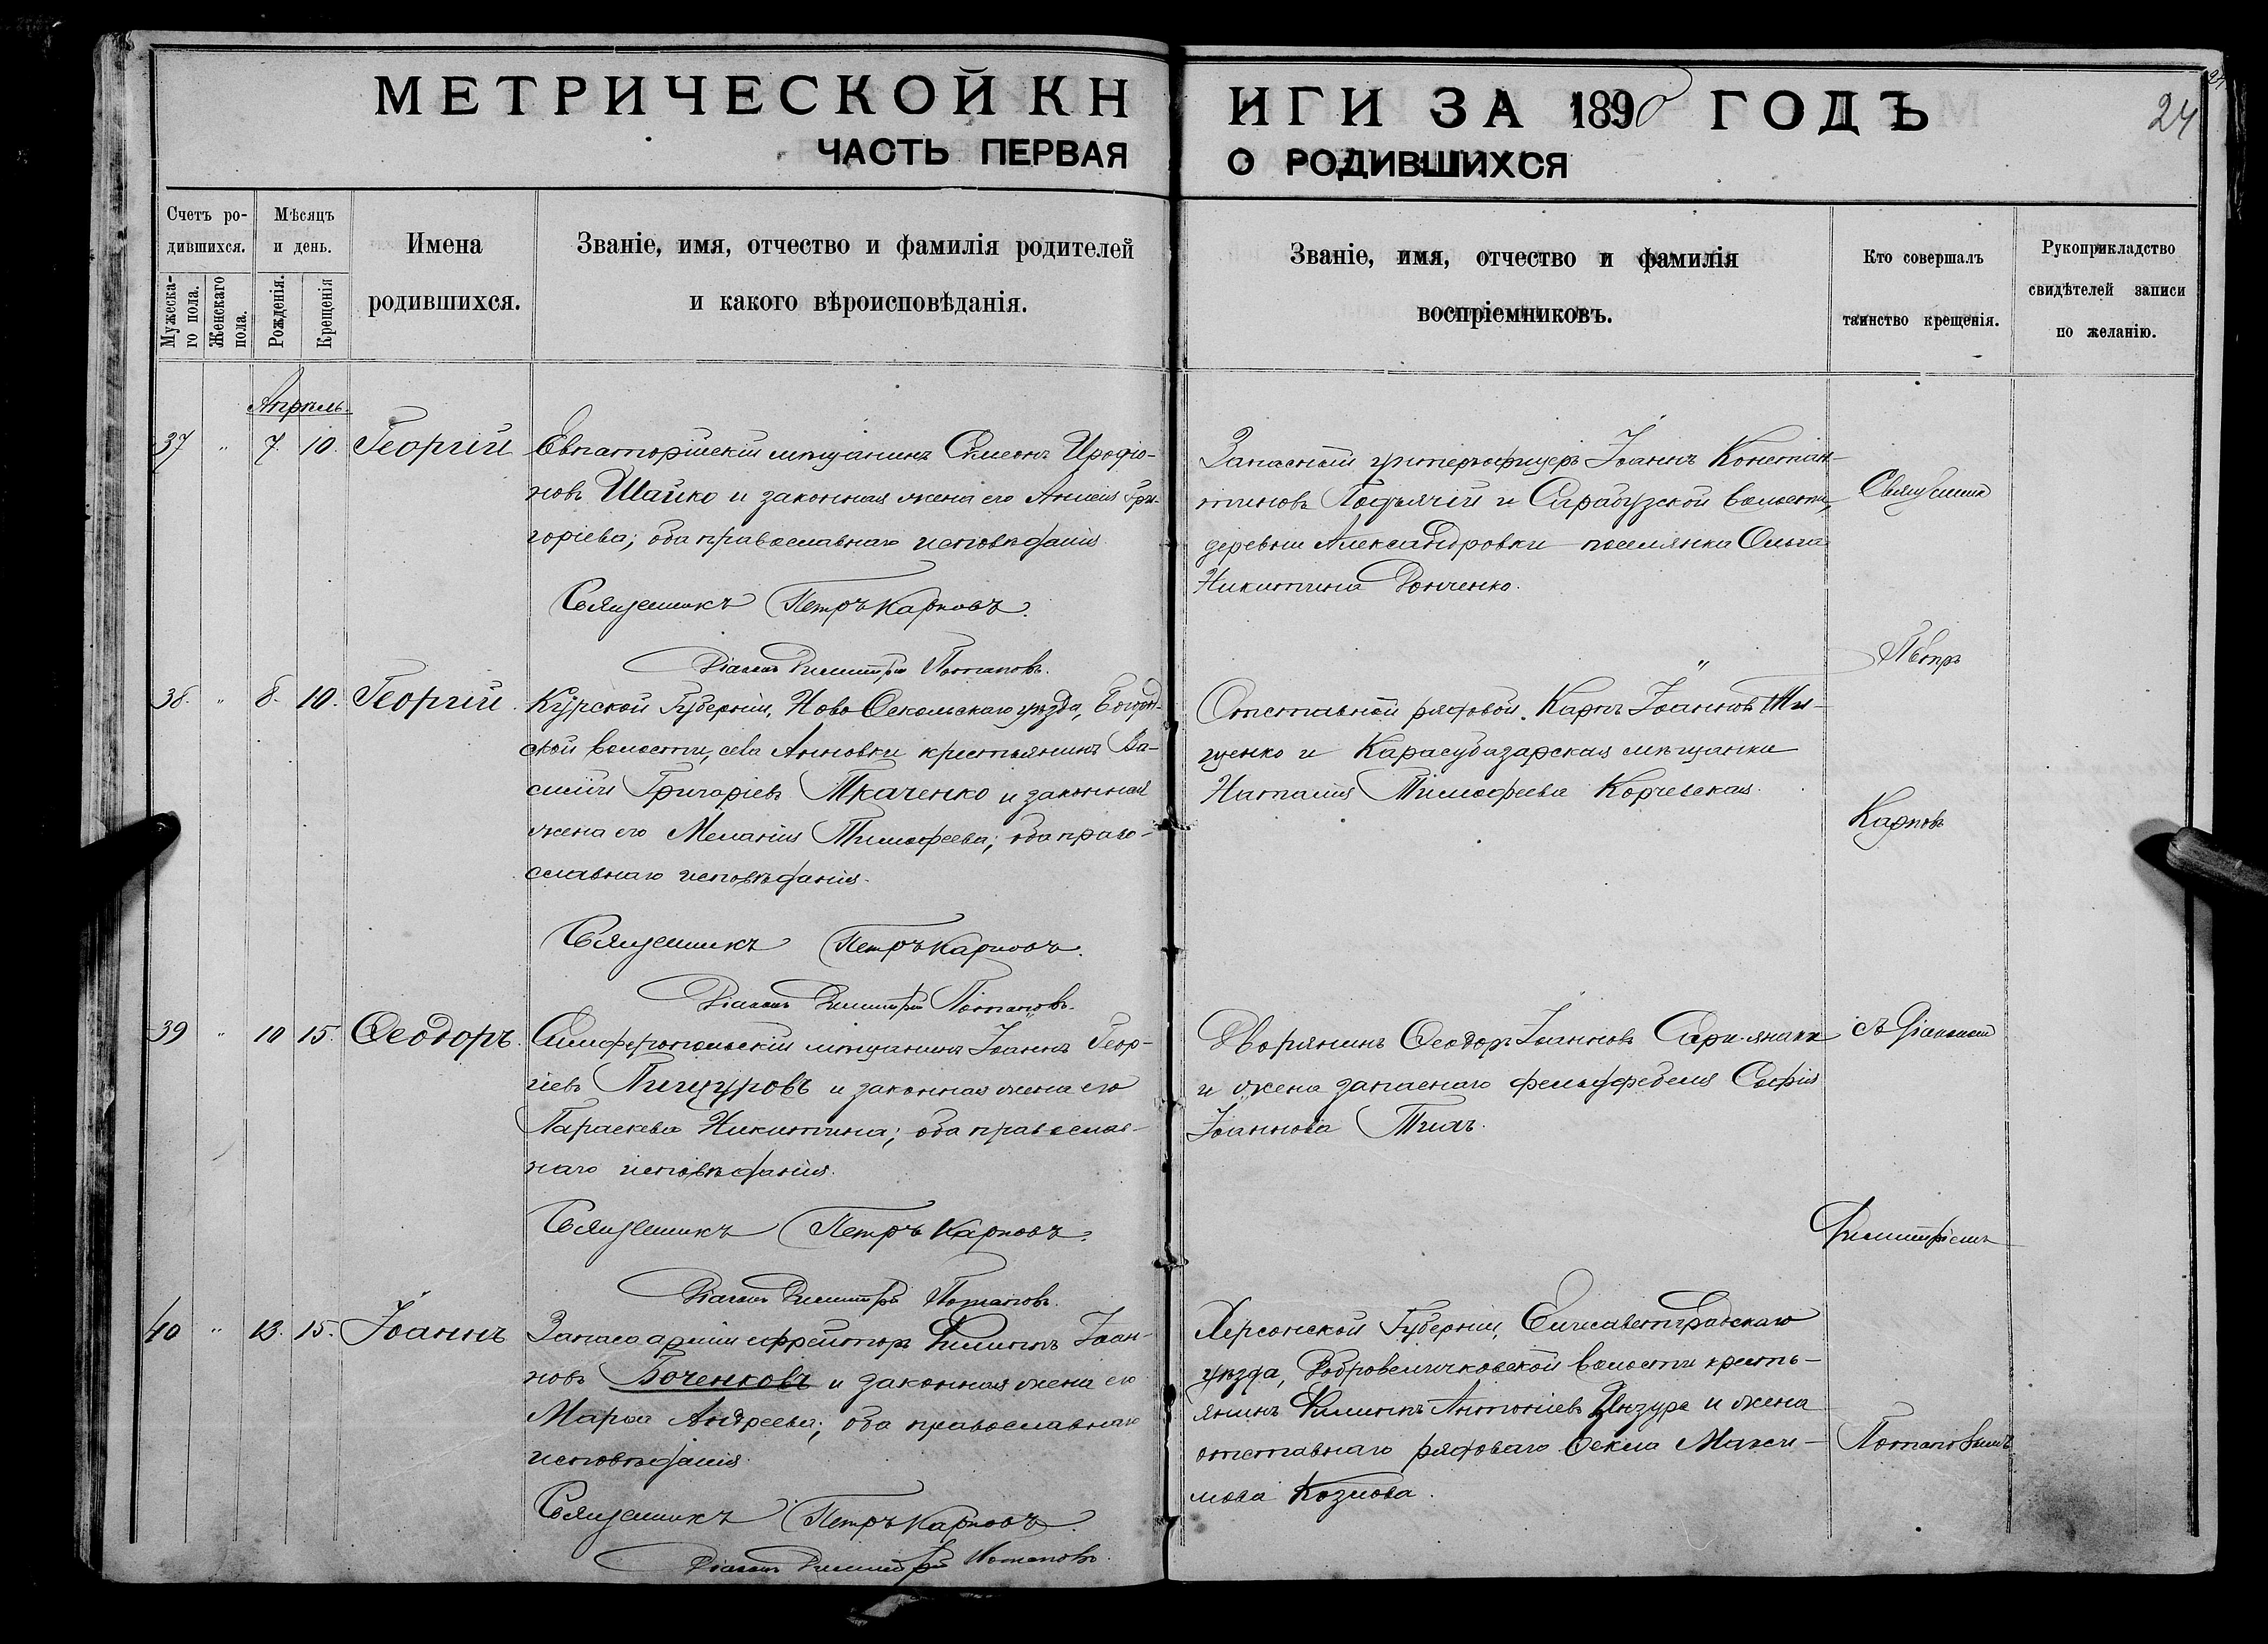 МЕТРИЧЕСКОЙ КНИГИ ЗА 1890 ГОДЪ
24
ЧАСТЬ ПЕРВАЯ О РОДИВШИХСЯ
Счетъ ро-
дившихся.
Мужеска-
го пола.
Женскаго
пола.
Мѣсяцъ
и день.
Рожденія.
Крещенія
Имена
родившихся.
Званіе, имя, отчество и фамилія родителей
и какого вѣроисповѣданія.
Званіе, имя, отчество и фамилія
воспріемниковъ.
Кто совершалъ
таинство крещенія.
Рукоприкладство
свидѣтелей записи
по желанію.
Апрѣль.
37 " 7. 10. Георгій
Евпаторійскій мѣщанинъ Симеонъ Иродіо-
новъ Шайко и законная жена его Анисія Гри-
горіева; оба православнаго исповѣданія
Священникъ Петръ Карповъ.
Діаконъ Димитрій Потаповъ.
Запасный унтерофицеръ Іоаннъ Констан-
тиновъ Подъячій и Сарабузской волости,
деревни Александровки поселянка Ольга
Никитина
Священник
Петръ
38. " 8. 10. Георгій.
Курской Губерніи, Ново Оскольскаго уѣзда,
ской волости, села Анновки крестьянинъ Ва-
силій Григоріевъ Ткаченко и законная
жена его Меланія Тимофеева; оба право-
славнаго исповѣданія.
Священникъ Петръ Карповъ.
Діаконъ Димитрій Потаповъ.
Отставной рядовой Карпъ Іоанновъ Ти-
щенко и Карасубазарская мѣщанка
Наталія Тимофеева Корчевская.
Карповъ
39 " 10 15. Ѳеодоръ.
Симферопольскій мѣщанинъ Іоаннъ Геор-
гіевъ Пищуровъ и законная жена его
Параскева Никитина; оба православ-
наго исповѣданія.
Священникъ Петръ Карповъ.
Діаконъ Димитрій Потаповъ.
Дворянинъ Ѳеодоръ Іоанновъ
и жена запаснаго фельдфебеля Софія
Іоаннова
съ діакономъ
Димитріемъ
40 " 13. 15. Іоаннъ
Запаса арміи ефрейторъ Филиппъ Іоан-
новъ Боченковъ и законная жена его
Марѳа Андреева; оба православнаго
исповѣданія.
Священникъ Петръ Карповъ.
Діаконъ Димитрій Потаповъ.
Херсонской Губерніи, Елисаветградскаго
уѣзда, Добровеличковской волости кресть-
янинъ Филиппъ Антоніевъ Цизура и жена
отставнаго рядоваго Ѳекла Макси-
мова Козлова.
Потаповымъ